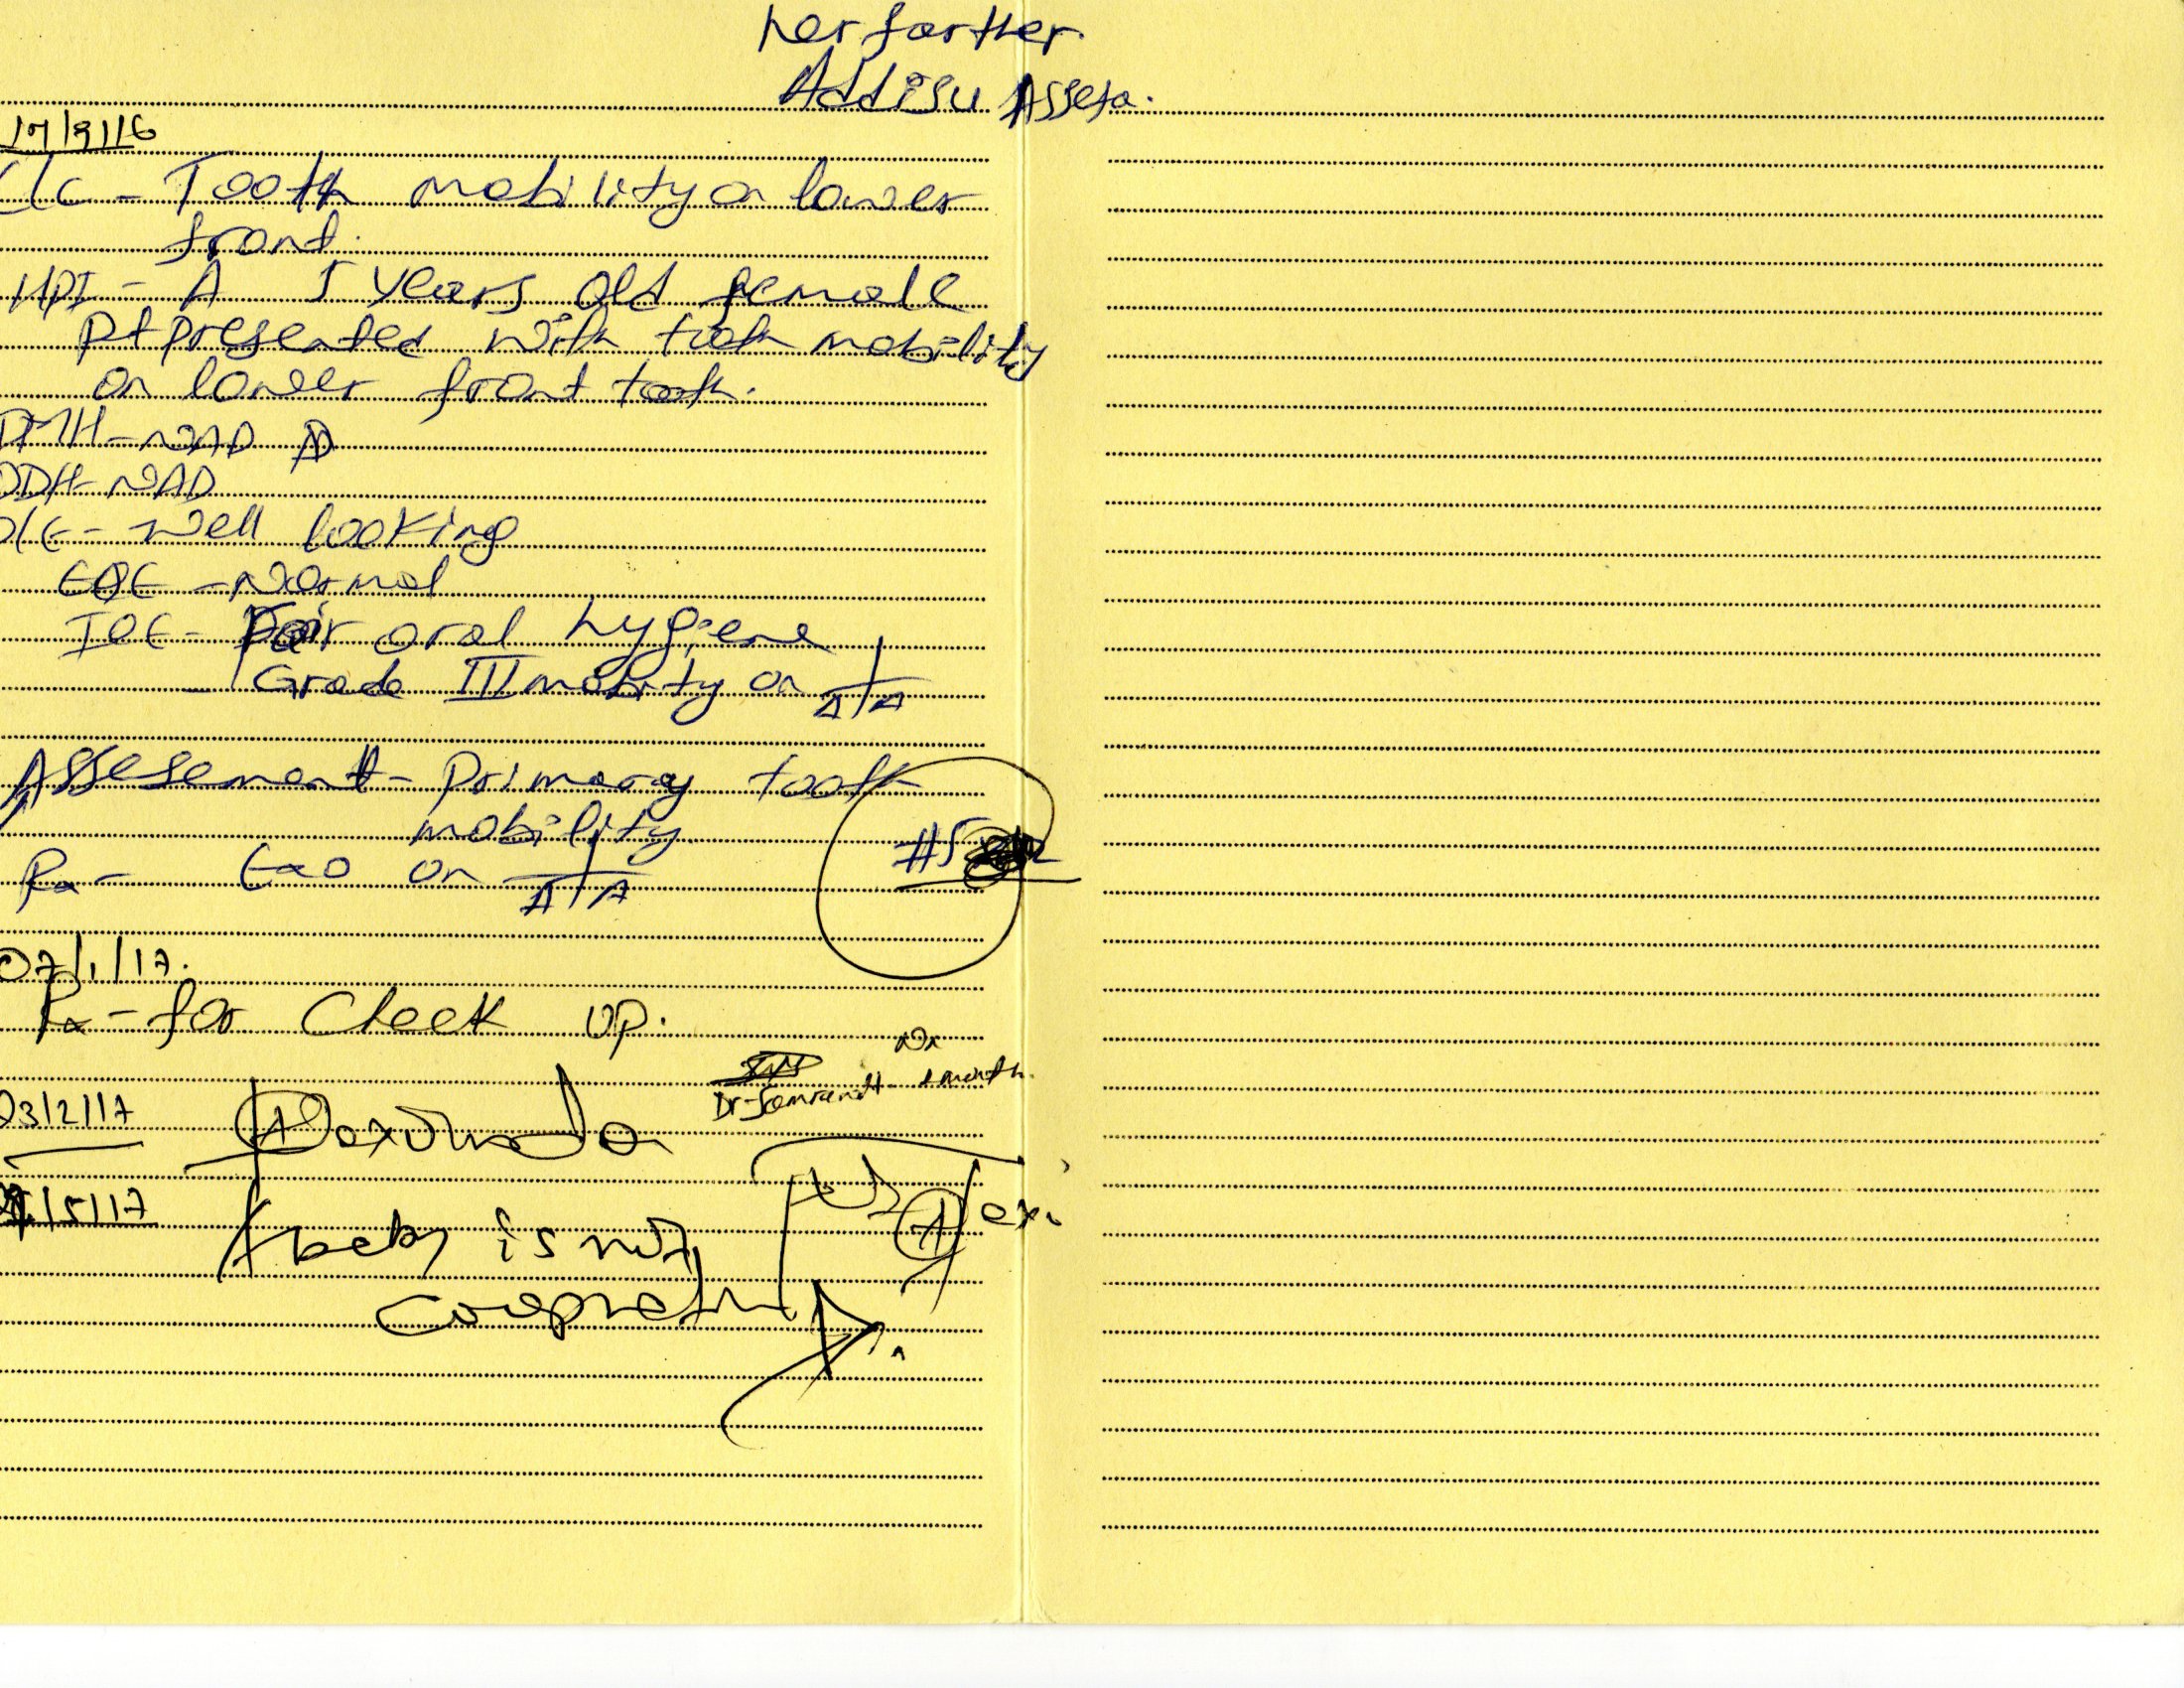 her farther
Addisu Assefa.
17/9/16
C/C - Tooth mobility on lower
front.
HPI - A 5 years old female
pt presented with tooth mobility
on lower front tooth.
PMH - NAD
PDH - NAD
O/E - Well looking
EOE - Normal
IOE - Fair oral hygiene
- Grade III mobity on A|A
Assesement - Primary tooth
mobility
#5
Rx - Exo on A|A
07/1/17.
Rx - for Check up.
Dr 1 month.
03/2/17
/5/17
baby is not